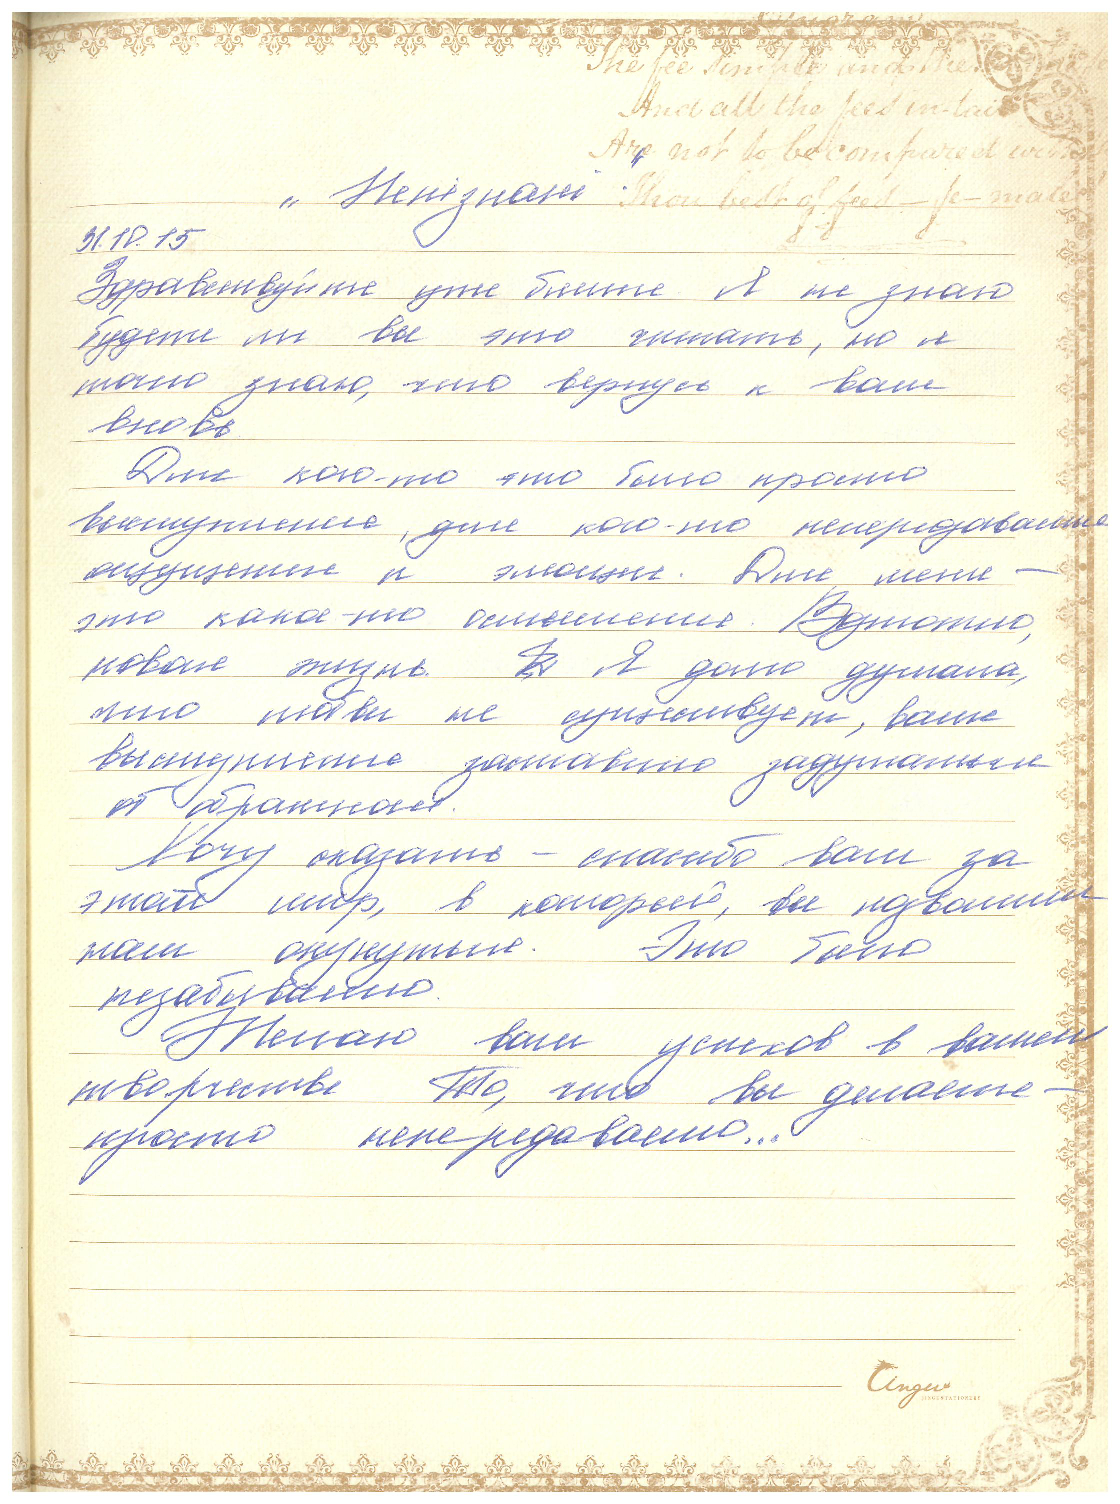 The fee simple and the
And all the fees in-tail
Are not to be compared with
Thou best of fees - fe-male
„ Непізнані "
31.10.15
Здравствуйте уже ближе Я не знаю
будете ли вы это читать, но я
точно знаю, что вернусь к вам
вновь.
Для кого-то это было просто
выступление, для кого-то непередаваемые
ощущения и эмоции. Для меня —
это какое-то осмысление. Возможно,
новая жизнь. Я долго думала,
что любви не существует, ваше
выступление заставило задуматься
об обратном.
Хочу сказать – спасибо вам за
этот мир, в который, вы позволили
нам окунуться. Это было
незабываемо.
Желаю вам успехов в вашем
творчестве То, что вы делаете —
просто непередаваемо...
Angel